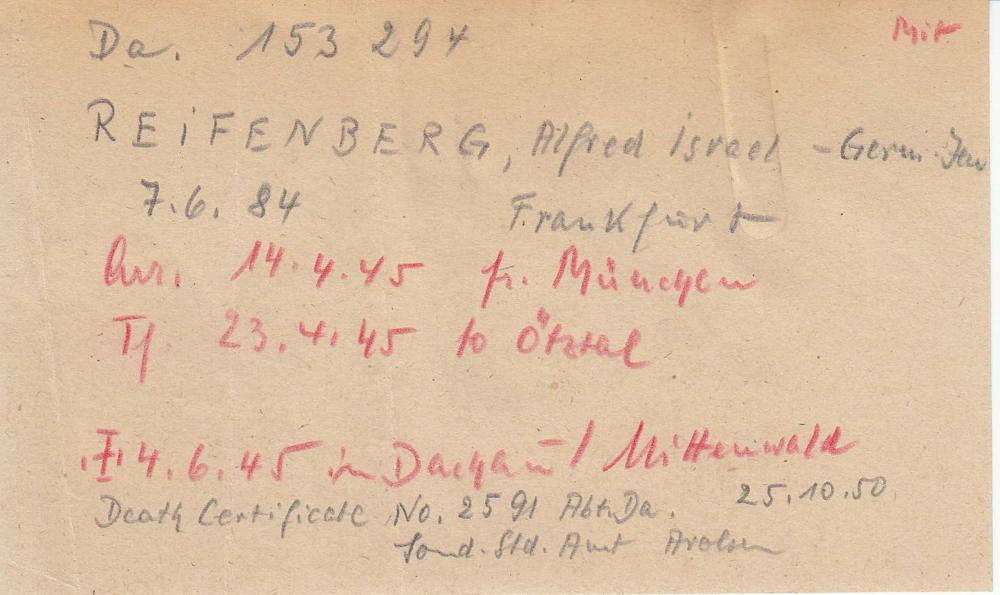 Da. 153 294
Mit
REiFENBERG, Alfred Israel - Germ. Jew
7.6. 84 Frankfurt
Arr. 14.4.45 fr. München
Tf. 23.4.45 to Ötztal
4.6.45 in Dachau / Mittenwald
Death Certificate No. 2591 Abt. Da. 25.10.50
Sond. Std. Amt Arolsen